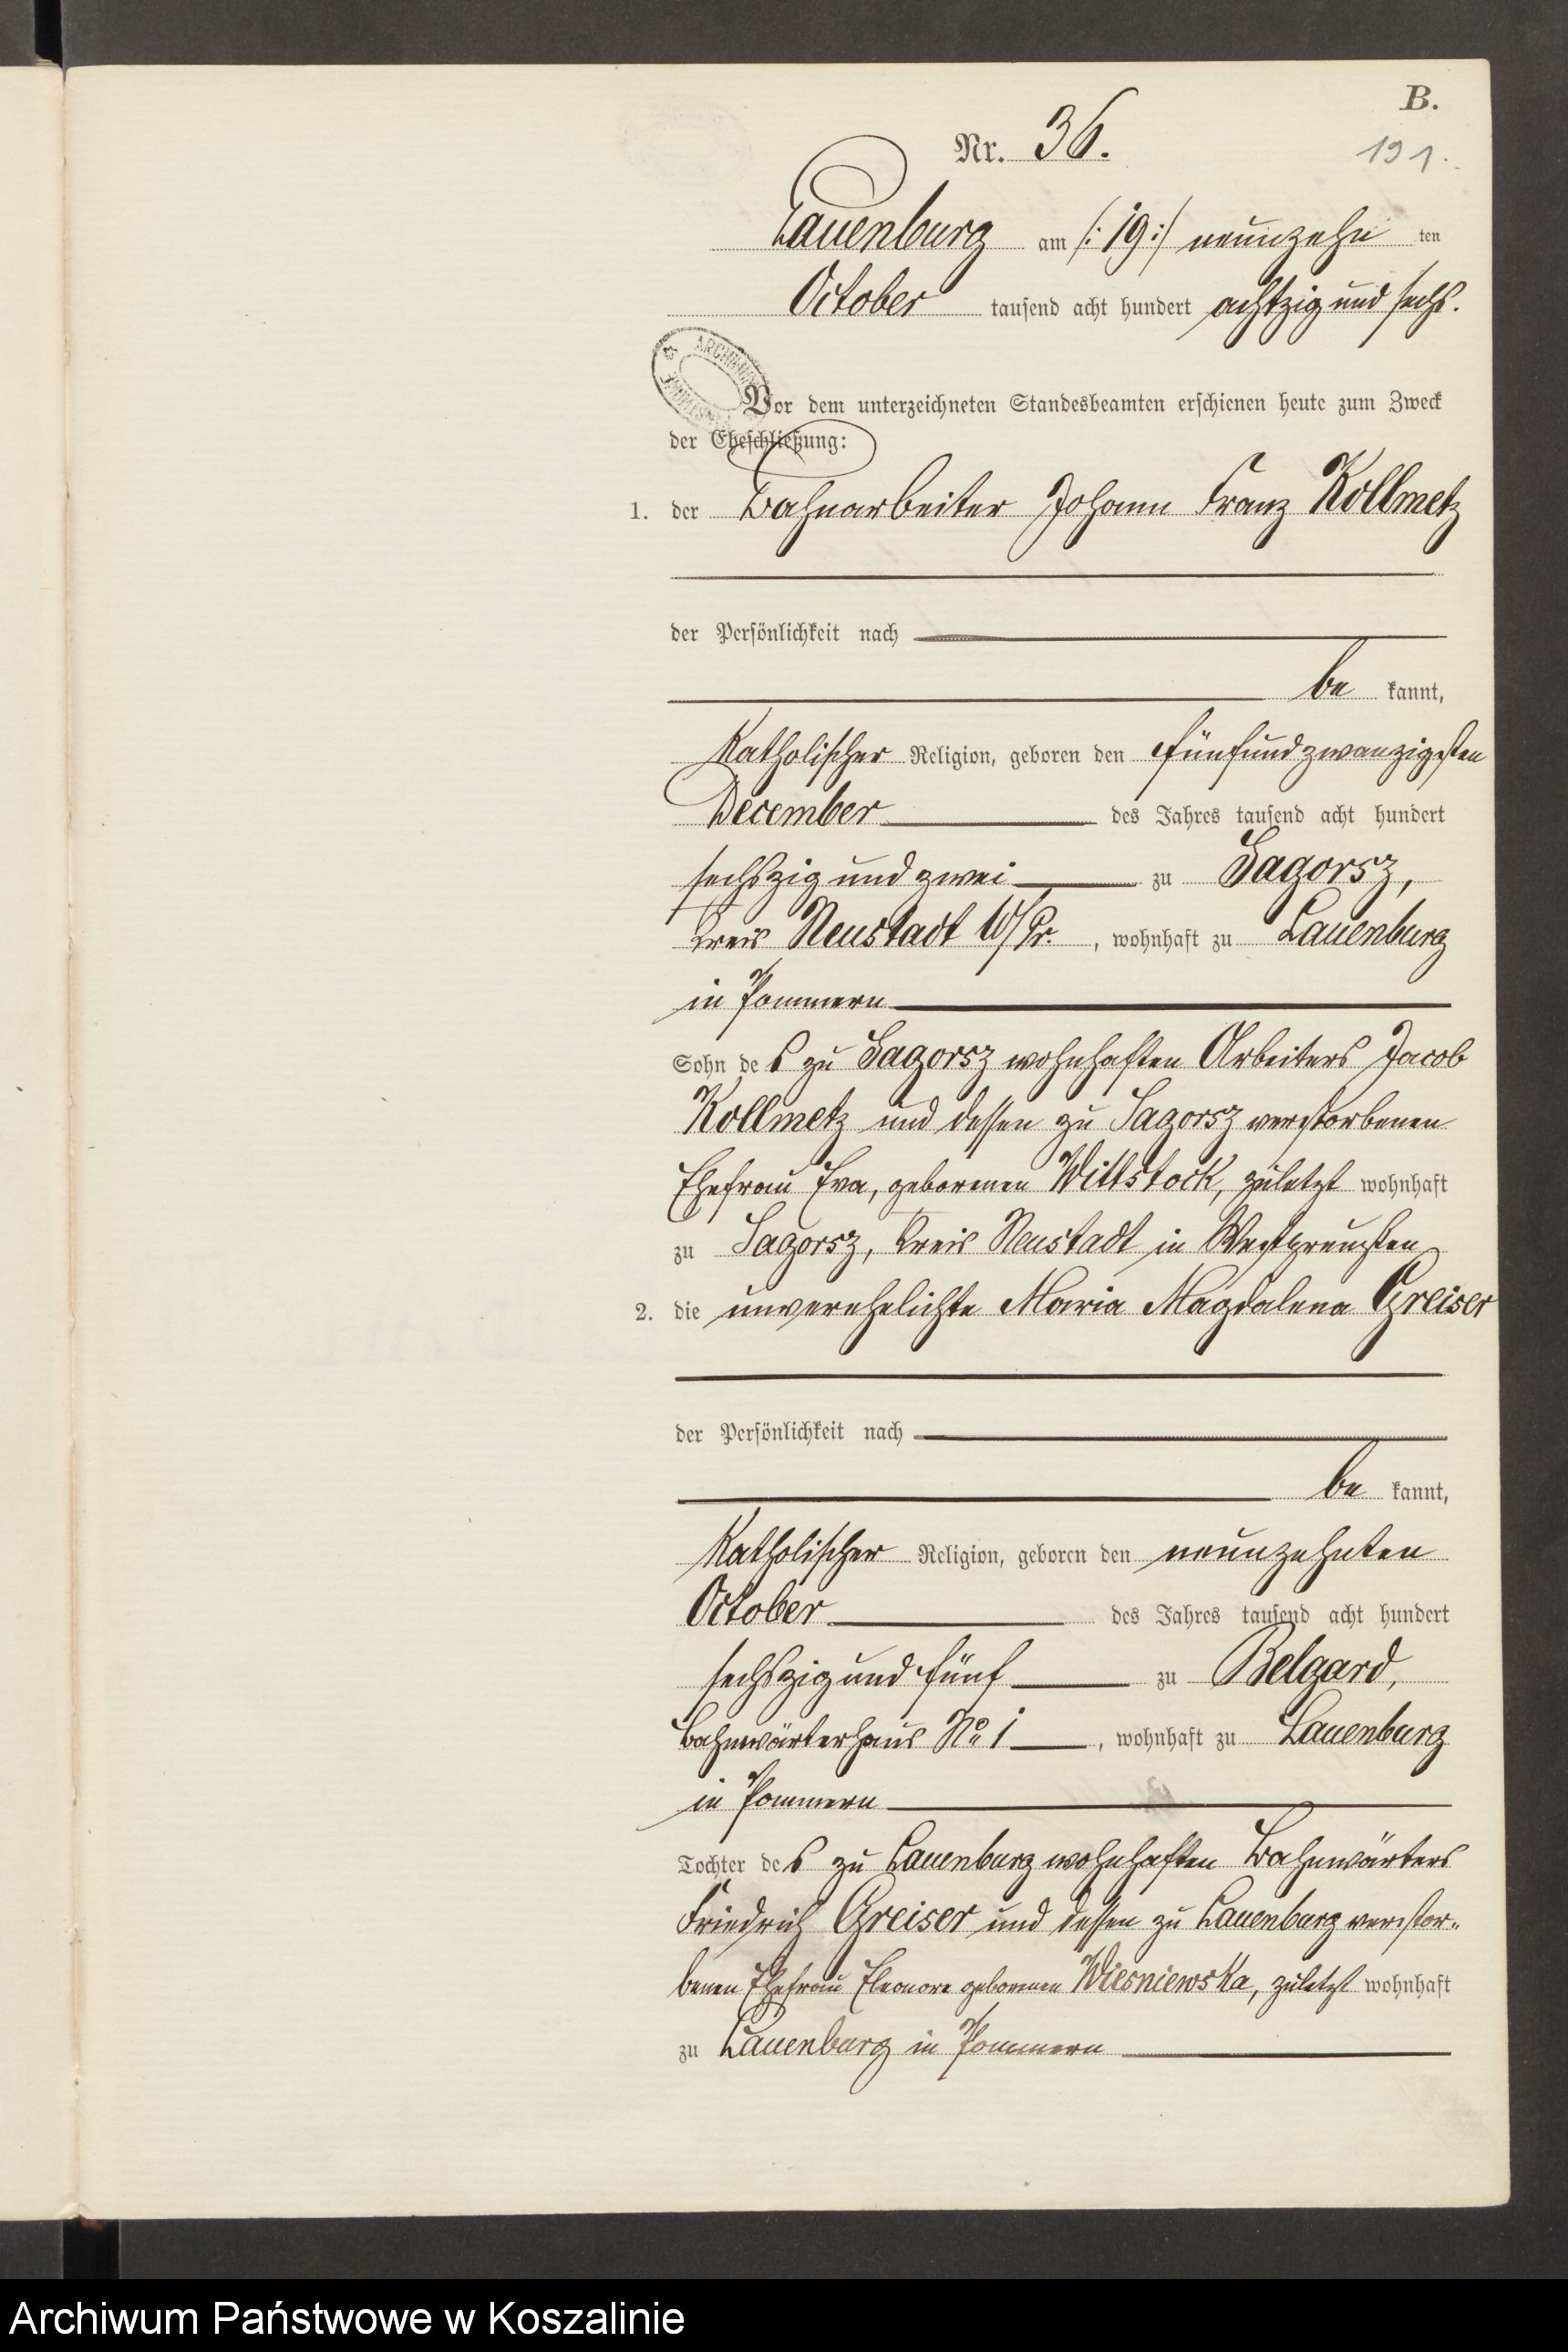 B.
Nr. 36.
191.
Lauenburg am /: 19 :/ neunzehn ten
October tausend acht hundert achtzig und sechs.
ARCHIWUM
Vor dem unterzeichneten Standesbeamten erschienen heute zum Zweck
der Eheschließung:
1. der Bahnarbeiter Johann Franz Kollmetz
der Persönlichkeit nach
be kannt,
Katholischer Religion, geboren den fünfundzwanzigsten
December des Jahres tausend acht hundert
sechszig und zwei zu Sagorsz,
Kreis Neustadt W/Pr., wohnhaft zu Lauenburg
in Pommern
Sohn des zu Sagorsz wohnhaften Arbeiters Jacob
Kollmetz und dessen zu Sagorsz verstorbenen
Ehefrau Eva, geborenen Wittstock, zuletzt wohnhaft
zu Sagorsz, Kreis Neustadt in Westpreußen
2. die unverehelichte Maria Magdalena Greiser
der Persönlichkeit nach
be kannt,
Katholischer Religion, geboren den neunzehnten
October des Jahres tausend acht hundert
sechszig und fünf zu Belgard,
Bahnwärterhaus No 1, wohnhaft zu Lauenburg
in Pommern
Tochter des zu Lauenburg wohnhaften Bahnwärters
Friedrich Greiser und dessen zu Lauenburg verstor-
benen Ehefrau Eleonore geborenen Wiesniewska, zuletzt wohnhaft
zu Lauenburg in Pommern
Archiwum Państwowe w Koszalinie